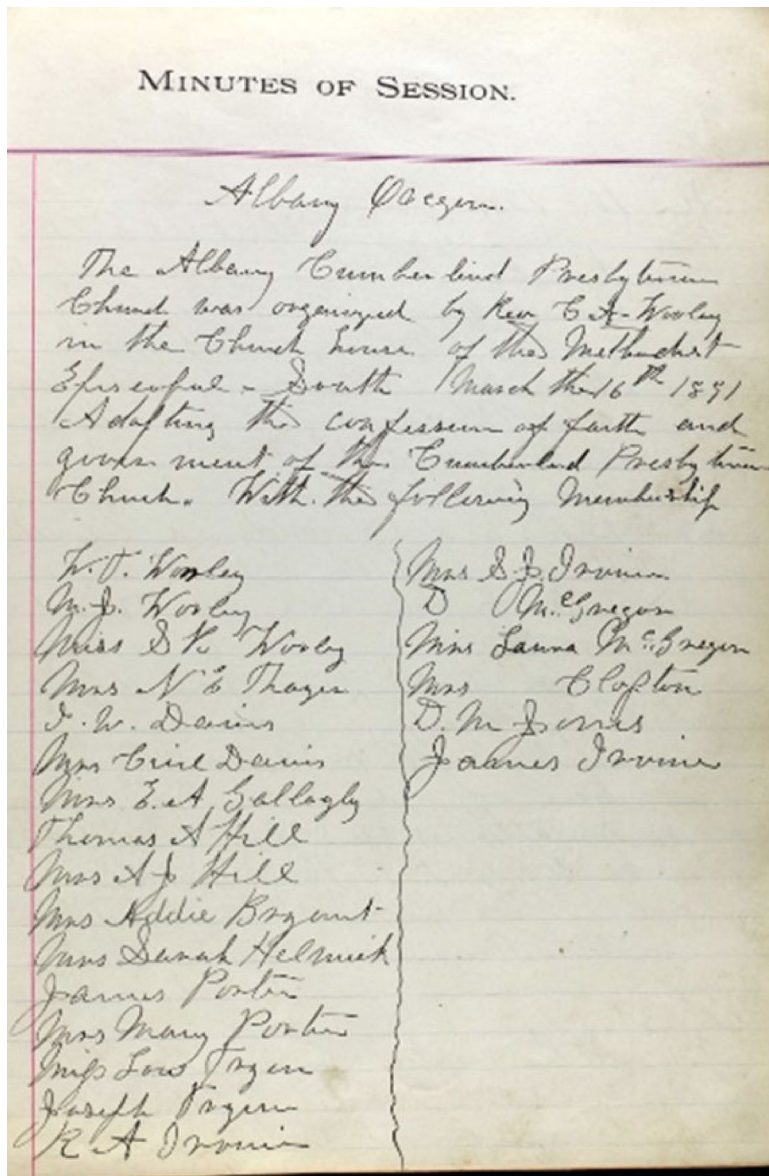 MINUTES OF SESSION.
Albany Oregon.
The Albany Cumberlind Presbyterian
Church was organized by Rev C A Wooley
in the Church house of the Methodist
Episcopal - South March the 16th 1891
Adopting the confession of faith and
government of the Cumberland Presbyterian
Church. With the following Membership
W. T. Wooley
M. J. Wooley
Miss S V. Wooley
Mrs N E Thayer
I. W. Davis
Mrs Davis
Mrs E. A Gallagly
Thomas A Hill
Mrs A J Hill
Mrs Addie Bryant
Mrs Sarah Helmick
James Porter
Mrs Mary Porter
Miss Low
Joseph
R A Irvine
Mrs S. J. Irvine
D McGregor
Miss Laura McGregor
Mrs Clopton
D. M Jones
James Irvine